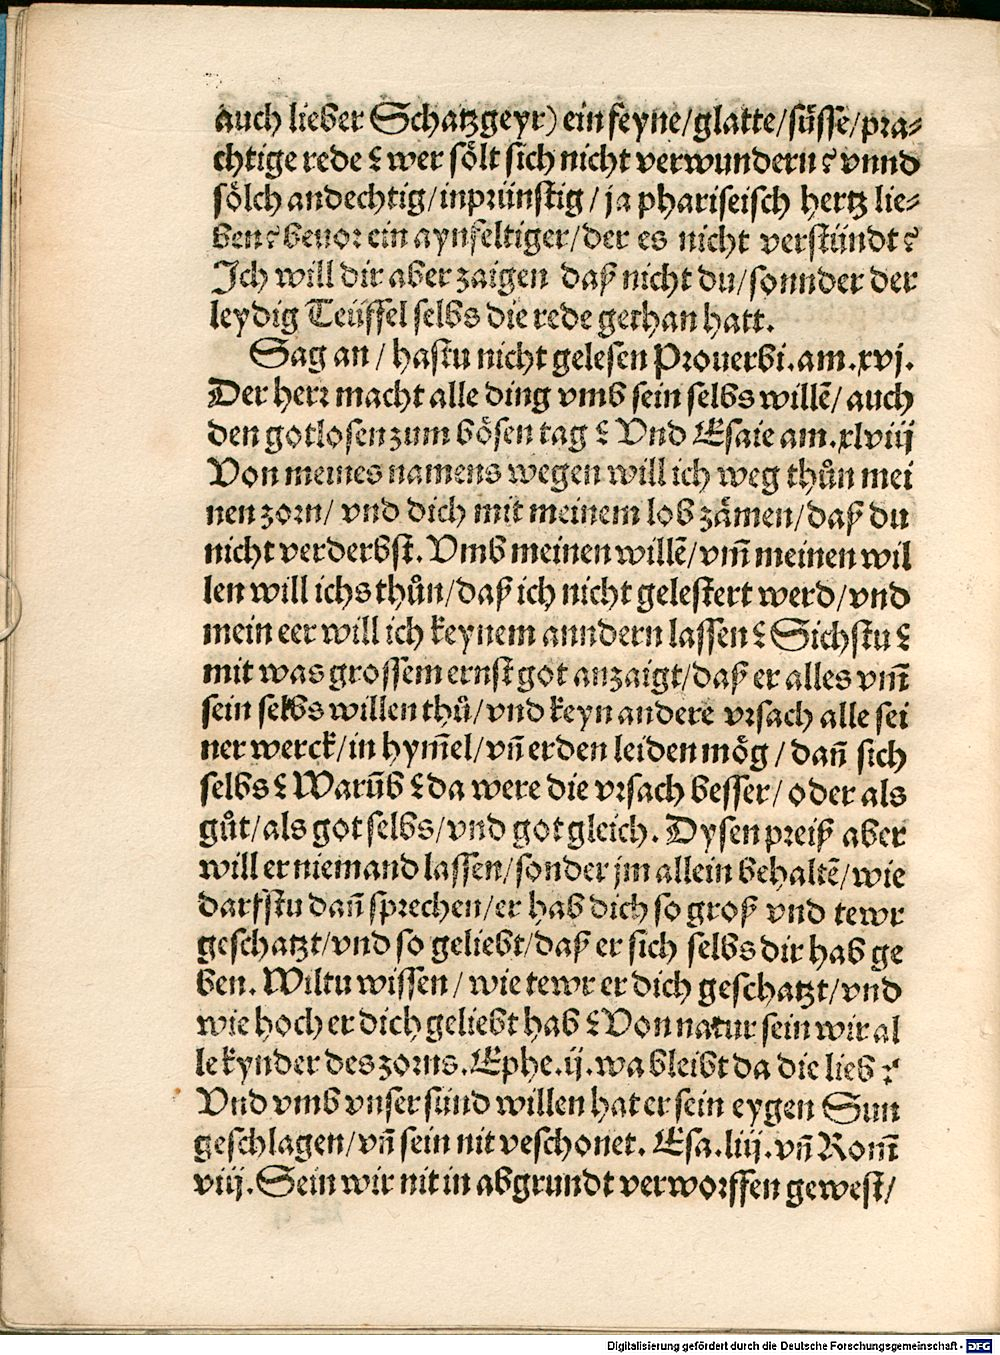 auch lieber Schatzgeyr) ein feyne/glatte/süsse/pra⸗
chtige rede? wer sölt sich nicht verwundern? vnnd
sölch andechtig/inprünstig/ ja phariseisch hertz lie⸗
ben? beuor ein aynfeltiger/der es nicht verstündt?
Ich will dir aber zaigen daß nicht du/sonnder der
leydig Teüffel selbs die rede gethan hatt.
Sag an / hastu nicht gelesen Prouerbi.am.xvj.
Der herr macht alle ding vmb sein selbs willē/ auch
den gotlosen zum bösen tag? Vnd Esaie am.xlviij
Von meines namens wegen will ich weg thůn mei
nen zorn/ vnd dich mit meinem lob zämen/daß du
nicht verderbst. Vmb meinen willē/vm̄ meinen wil
len will ichs thůn/daß ich nicht gelestert werd/vnd
mein eer will ich keynem anndern lassen? Sichstu?
mit was grossem ernst got anzaigt/daß er alles vm̄
sein selbs willen thů/vnd keyn andere vrsach alle sei
ner werck/in hym̄el/vn̄ erden leiden mög / dan̄ sich
selbs? Warūb? da were die vrsach besser/ oder als
gůt/als got selbs/vnd got gleich. Dysen preiß aber
will er niemand lassen/sonder jm allein behaltē/wie
darfstu dan̄ sprechen/er hab dich so groß vnd tewr
geschatzt/vnd so geliebt/daß er sich selbs dir hab ge
ben. Wiltu wissen / wie tewr er dich geschatzt/vnd
wie hoch er dich geliebt hab? Von natur sein wir al
le kynder des zorns.Ephe.ij.wa bleibt da die lieb?
Vnd vmb vnser sünd willen hat er sein eygen Sun
geschlagen/vn̄ sein nit veschonet. Esa.liij.vn̄ Rom̄
viij. Sein wir nit in abgrundt verworffen gewest/
Digitalisierung gefördert durch die Deutsche Forschungsgemeinschaft - DFG